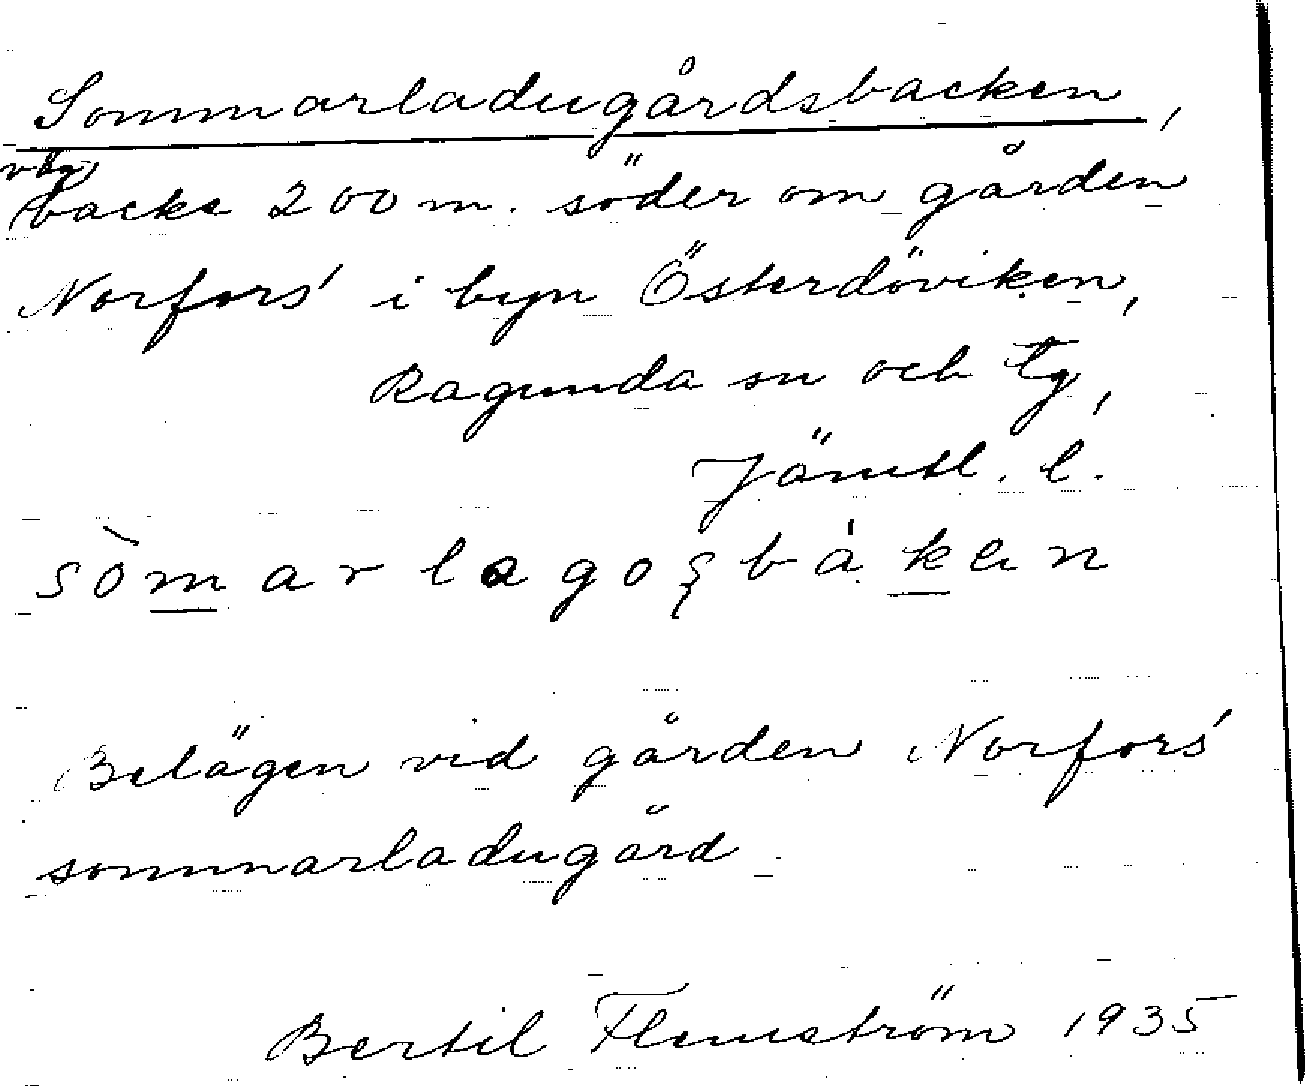 Sommarladugårdsbacken,
väg
backe 200 m. söder om gården
Norfors' i byn Österdöviken,
Ragunda sn och tg,
Jämtl. l.
sòmarlagoȿbákan
Belägen vid gården Norfors'
sommarladugård.
Bertil Flemström 1935